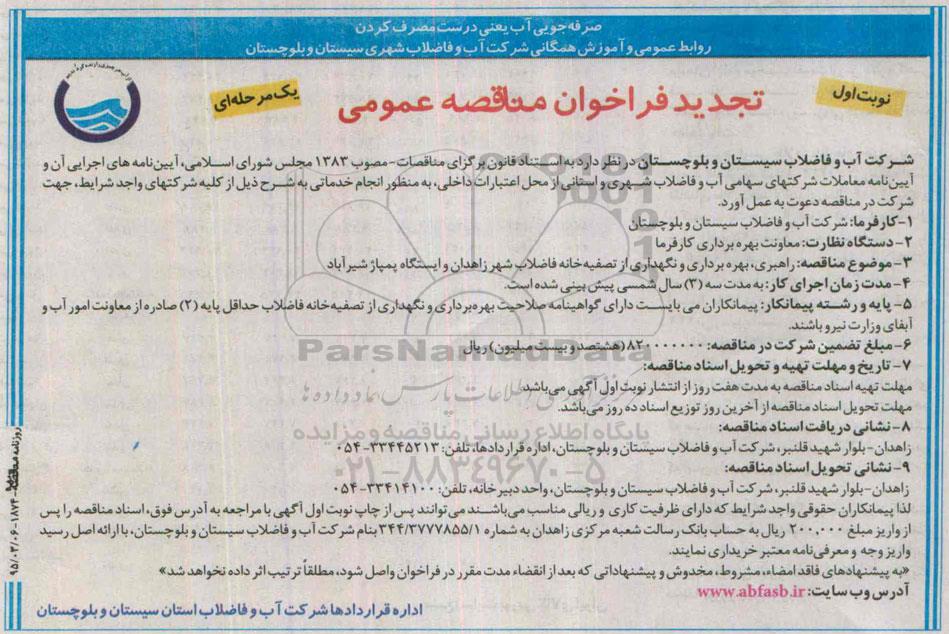 صرفه‌جویی آب یعنی درست مصرف کردن
روابط عمومی و آموزش همگانی شرکت آب و فاضلاب شهری سیستان و بلوچستان
نوبت اول
تجدید فراخوان مناقصه عمومی
یک مرحله‌ای
شرکت آب و فاضلاب سیستان و بلوچستان در نظر دارد به استناد قانون برگزای مناقصات - مصوب ۱۳۸۳ مجلس شورای اسلامی، آیین‌نامه های اجرایی آن و
آیین‌نامه معاملات شرکتهای سهامی آب و فاضلاب شهری و استانی از محل اعتبارات داخلی، به منظور انجام خدماتی به شرح ذیل از کلیه شرکتهای واجد شرایط، جهت
شرکت در مناقصه دعوت به عمل آورد.
۱- کارفرما: شرکت آب و فاضلاب سیستان و بلوچستان
۲- دستگاه نظارت: معاونت بهره برداری کارفرما
۳- موضوع مناقصه: راهبری، بهره برداری و نگهداری از تصفیه‌خانه فاضلاب شهر زاهدان و ایستگاه پمپاژ شیرآباد
۴- مدت زمان اجرای کار: به مدت سه (۳) سال شمسی پیش بینی شده است.
۵- پایه و رشته پیمانکار: پیمانکاران می بایست دارای گواهینامه صلاحیت بهره‌برداری و نگهداری از تصفیه‌خانه فاضلاب حداقل پایه (۲) صادره از معاونت امور آب و
آبفای وزارت نیرو باشند.
۶- مبلغ تضمین شرکت در مناقصه: ۸۲۰۰۰۰۰۰۰ (هشتصد و بیست میلیون) ریال
۷- تاریخ و مهلت تهیه و تحویل اسناد مناقصه:
مهلت تهیه اسناد مناقصه به مدت هفت روز از انتشار نوبت اول آگهی می‌باشد.
مهلت تحویل اسناد مناقصه از آخرین روز توزیع اسناد ده روز می‌باشد.
۸- نشانی دریافت اسناد مناقصه:
زاهدان - بلوار شهید قلنبر، شرکت آب و فاضلاب سیستان و بلوچستان، اداره قراردادها، تلفن: ۳۳۴۴۵۲۱۳-۰۵۴
۹- نشانی تحویل اسناد مناقصه:
زاهدان - بلوار شهید قلنبر، شرکت آب و فاضلاب سیستان و بلوچستان، واحد دبیرخانه، تلفن: ۳۳۴۱۴۱۰۰-۰۵۴
لذا پیمانکاران حقوقی واجد شرایط که دارای ظرفیت کاری و ریالی مناسب می‌باشند می‌توانند پس از چاپ نوبت اول آگهی با مراجعه به آدرس فوق، اسناد مناقصه را پس
از واریز مبلغ ۲۰۰,۰۰۰ ریال به حساب بانک رسالت شعبه مرکزی زاهدان به شماره ۳۴۴/۳۷۷۷۸۵۵/۱ بنام شرکت آب و فاضلاب سیستان و بلوچستان، با ارائه اصل رسید
واریز وجه و معرفی‌نامه معتبر خریداری نمایند.
«به پیشنهادهای فاقد امضاء، مشروط، مخدوش و پیشنهاداتی که بعد از انقضاء مدت مقرر در فراخوان واصل شود، مطلقاً ترتیب اثر داده نخواهد شد»
آدرس وب سایت: www.abfasb.ir
اداره قراردادها شرکت آب و فاضلاب استان سیستان و بلوچستان
ParsNamadData
مرکز آوری اطلاعات پارس نماد داده ها
پایگاه اطلاع رسانی مناقصه و مزایده
۰۲۱-۸۸۳۴۹۶۷۰-۵